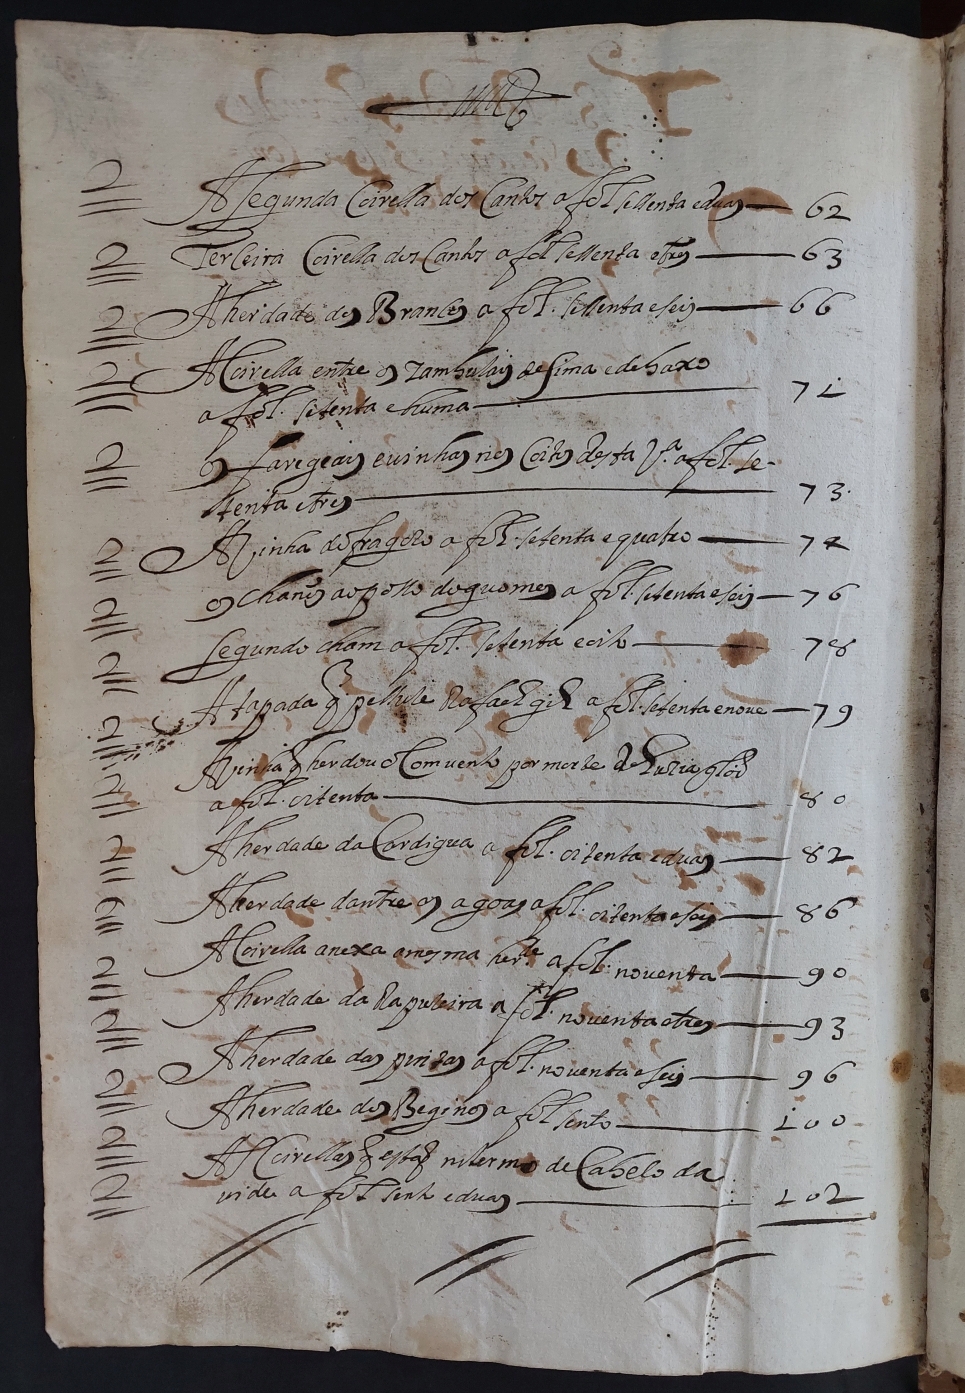 2 A segunda Coirella dos Cantos a fol sessenta eduas 62
2 Terseira Coirella dos Cantos a fol sessenta etres 63
2 A herdade dos Brancos a fol. sessenta eseis 66
2 A Coirella entre os Zambulais de sima edebaxo
a fol. setenta ehuma 71
2 os faregeais evinhas nos Coitos desta V.ª a fol. se-
tenta etres 73
2 A vinha do fragozo a fol. setenta equatro 74
2 os Chaos ao posso dos guomes a fol. setenta eseis 76
2 segundo cham a fol. setenta eoito 78
2 A tapada q Rafael gil a fol. setenta enove 79
2 A vinha q herdou o Comvento por morte de Luzia
a fol. oitenta 80
2 A herdade da Cordigua a fol. oitenta eduas 82
2 A herdade dantre as agoas a fol. oitenta eseis 86
2 A Coirella anexa a mesma her.de a fol. noventa 90
2 A herdade da Rapuleira a fol. noventa etres 93
2 A herdade das pintas a fol. noventa eseis 96
2 A herdade dos Beginos a fol sento 100
2 As Coirellas q estaõ no termo de Cabeso da
2 vide a fol sento eduas 102